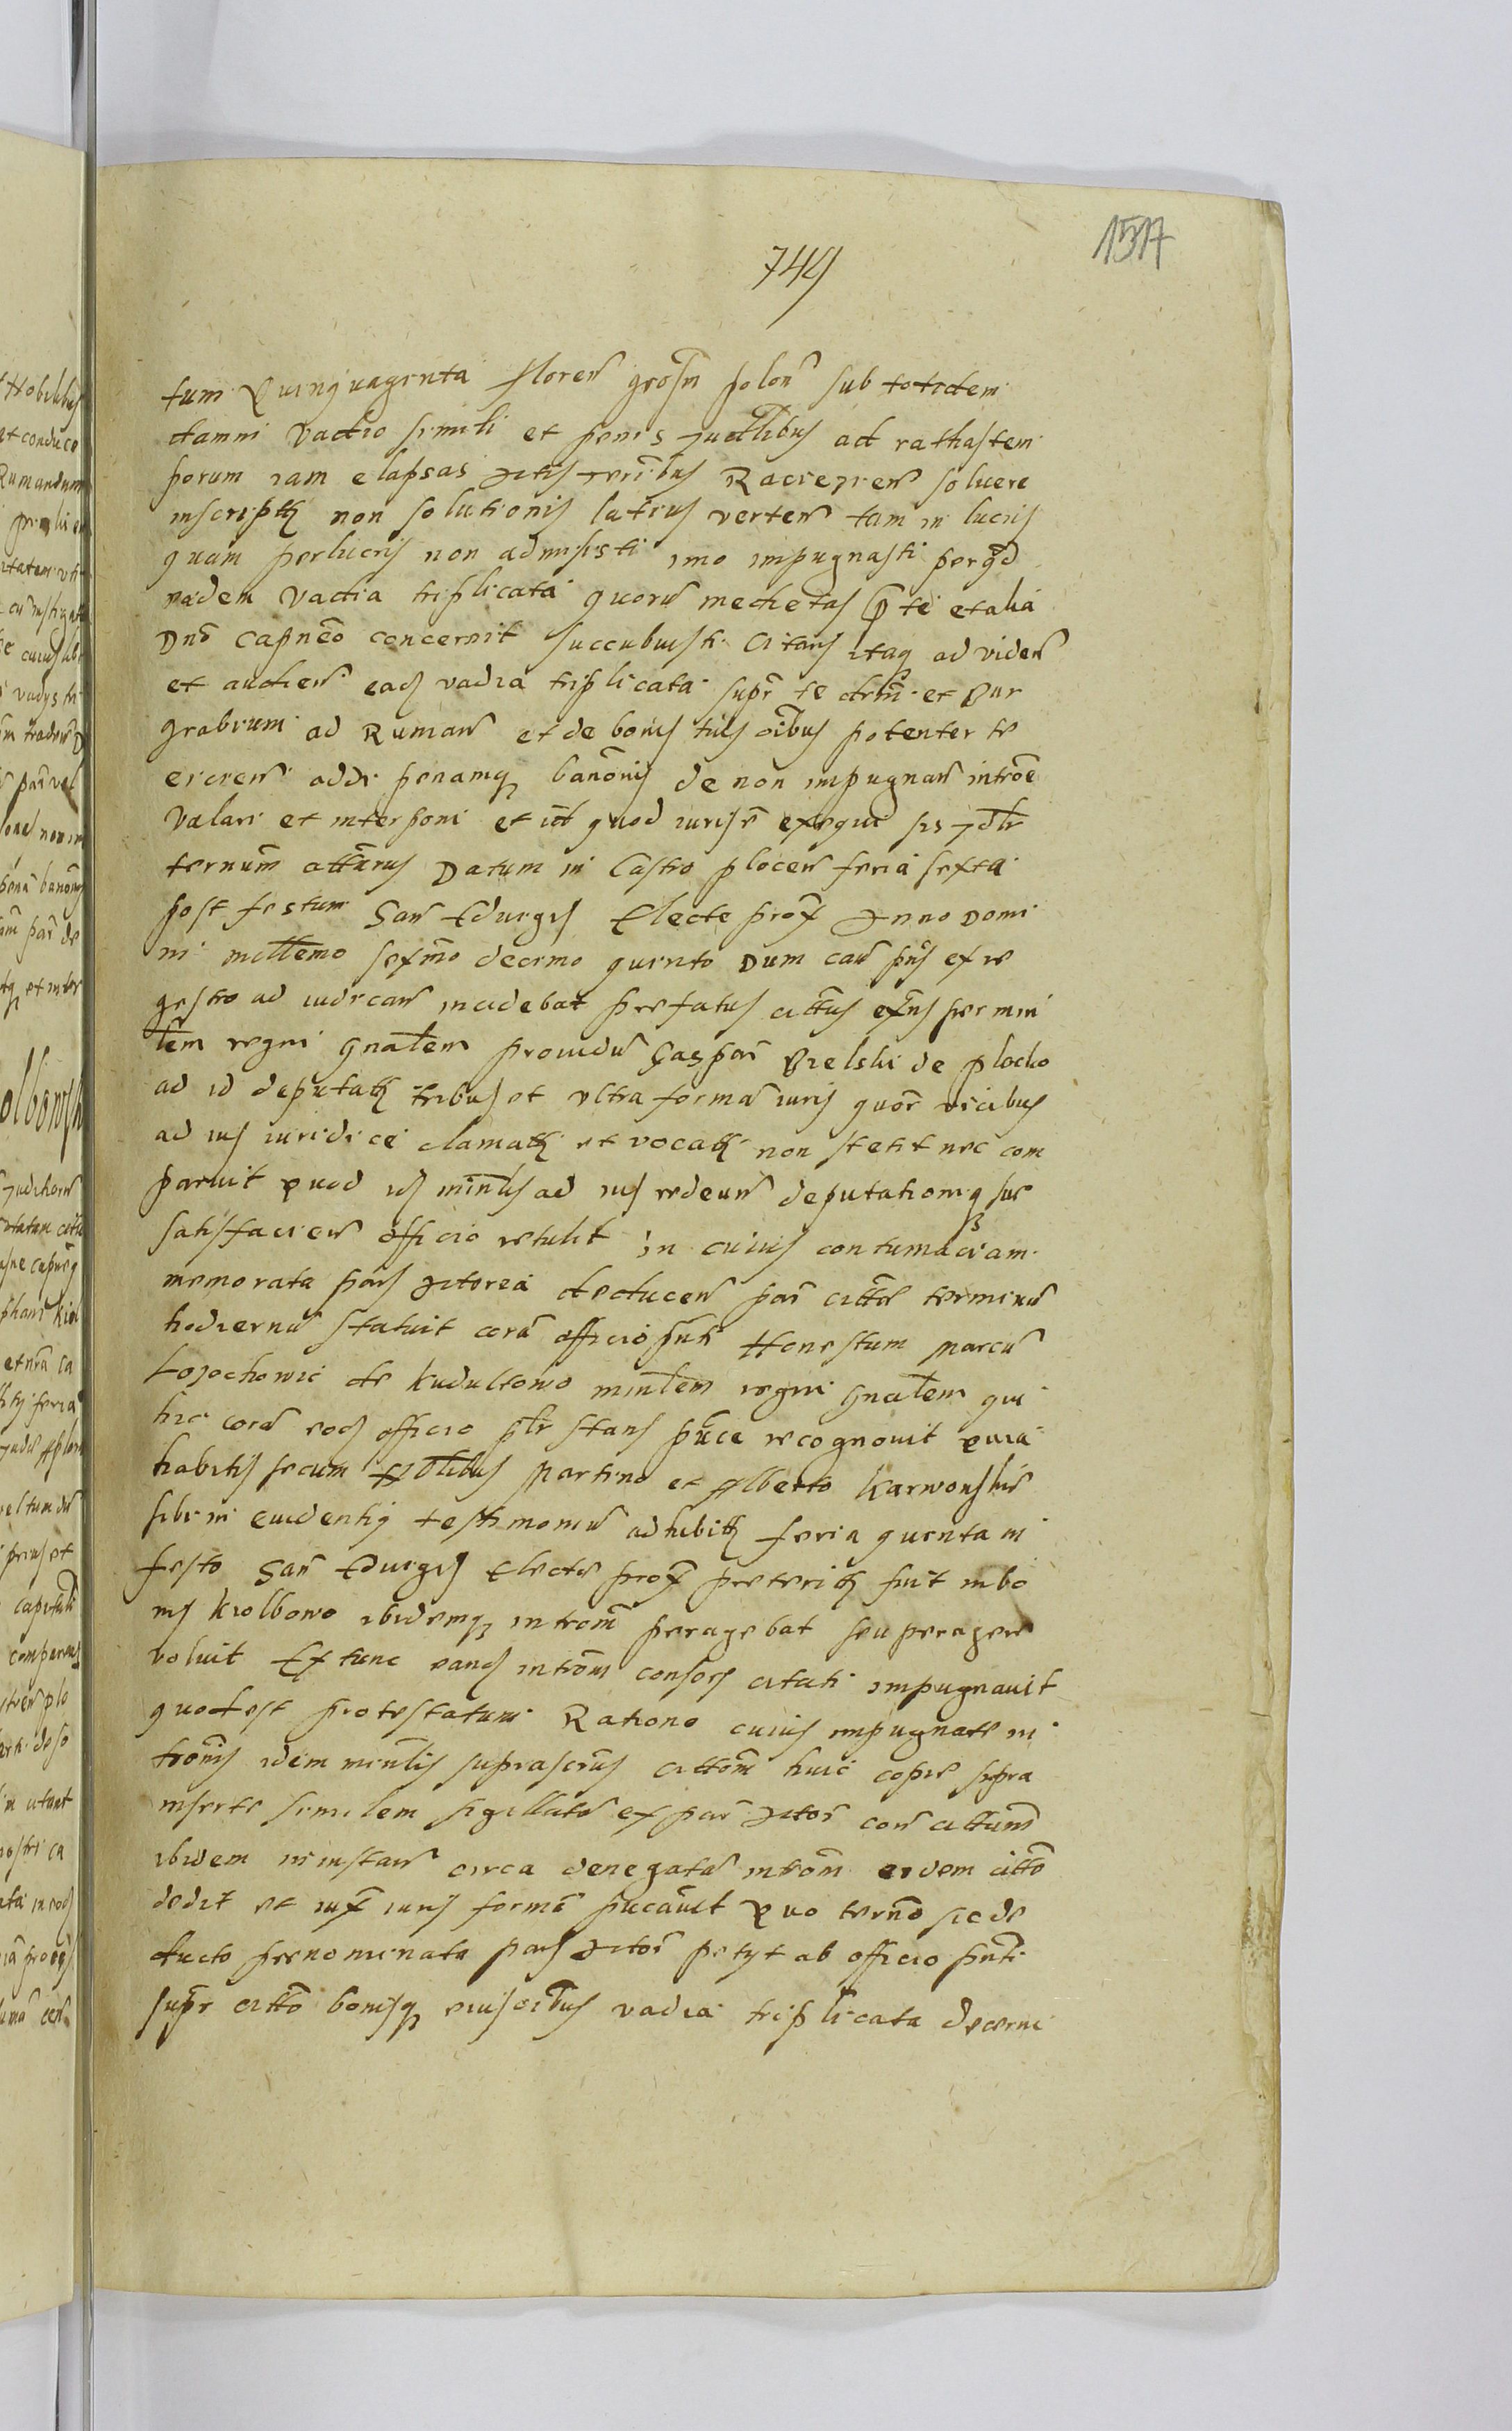 1517
749
tum Quinquaginta floreñ grosm̃ poloñ sub totidem
damni vadio simili et penis Judlibus ad rathas tem
porum iam elapsas Actis terribus Raciezieñ soluere
inscriptħ non solutionis latius verteñ tam in lucris
quam perlucris non admisisti imo impugnasti per qd
eadem vadia triplicata quorũ medietas p te et alia
Dno Capneo concernit succubuisti Citaris itaq ad videñ
et audieñ eadẽ vadia triplicata supr te decrni et Bur
grabium ad Rumañ et de bonis tuis oibus potenter te
eicieñ addi penamq banonis de non impugnañ introe
valari et interponi et id quod iuris e exequi sis Jdlr
ternum attẽrus Datum in Castro ploceñ feria sexta
post festum Sañ Eduigis Electe prox Anno Domi
ni millemo sexmo decimo quinto Dum cañ pñs ex re
gestro ad iudicañ incidebat prefatus cittus exns per mini
lem regni gnalem prouidũ Gaspar Bielski de plocko
ad id deputatħ tribus et vltra formã iuris quor vicibus
ad ius iuridice clamatħ et vocatħ non stetit nec com
paruit quod is minlis ad ius redeuñ deputationiq sue
satisfacieñ officio retulit In cuius contumaciam
memorata pars Actorea deduceñ par cittã terminũ
hodiernũ statuit corã officio pñti Honestum Marcũ
de Kudultowo minlem regni gnalem qui
hic corã eodẽ officio plr stans puce recognouit quia
habitis secum Nlibus Martino et Alberto Karwowskie
sibi in euidentis testimoniũ adhibitħ feria quinta in
festo Sañ Eduigis Electe prox preteritħ fuit in bo
nis Kiolbowo ibidemq introm peragebat seu peragere
voluit Ex tunc eandẽ introm consors citati impugnauit
quod est protestatum Ratione cuius impugnate in
tronis idem minlis suprascrus cittom huic copie supra
inserte similem sigillatã ex par Actor coñ cittum
ibidem in instañ circa denegatã introm eidem citto
dedit et iux iuris formã pucauit Quo terno sic de
ducto prenominata pars Actor petyt ab officio pñti
supr citto bonisq eius oibus vadia triplicata decerni